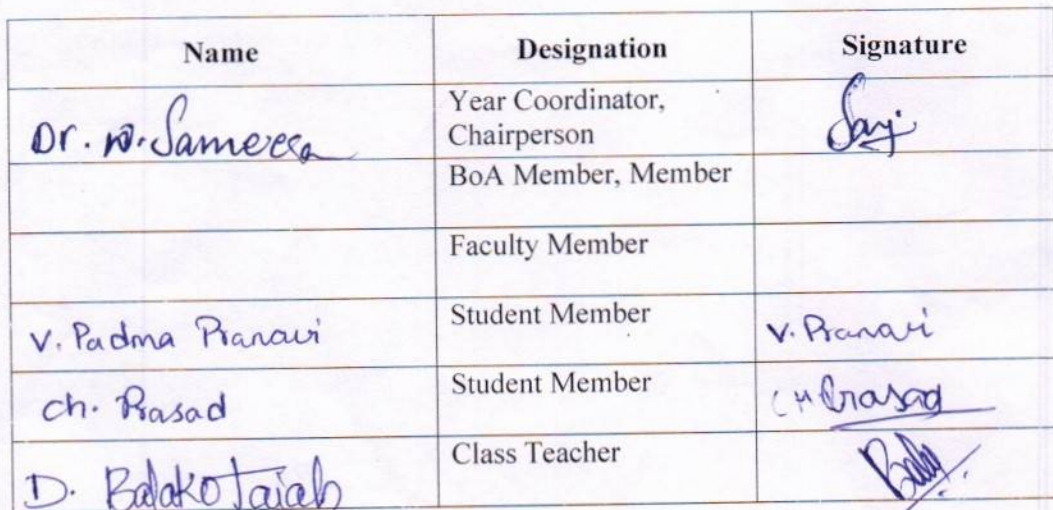 Name Designation Signature
Dr. N. Sameera Year Coordinator,
Chairperson
BoA Member, Member
Faculty Member
V. Padma Pranavi Student Member V. Pranavi
Ch. Prasad Student Member CH Prasad
D. Balakotaiah Class Teacher